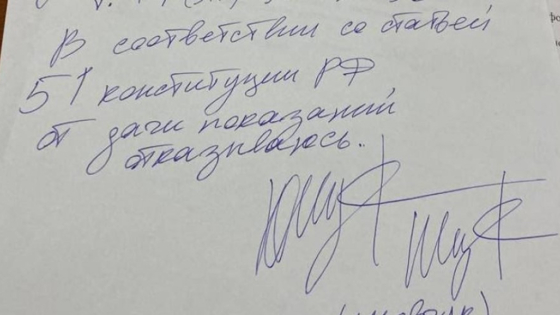 В соответствии со статьей
51 конституции РФ
от дачи показаний
отказываюсь.